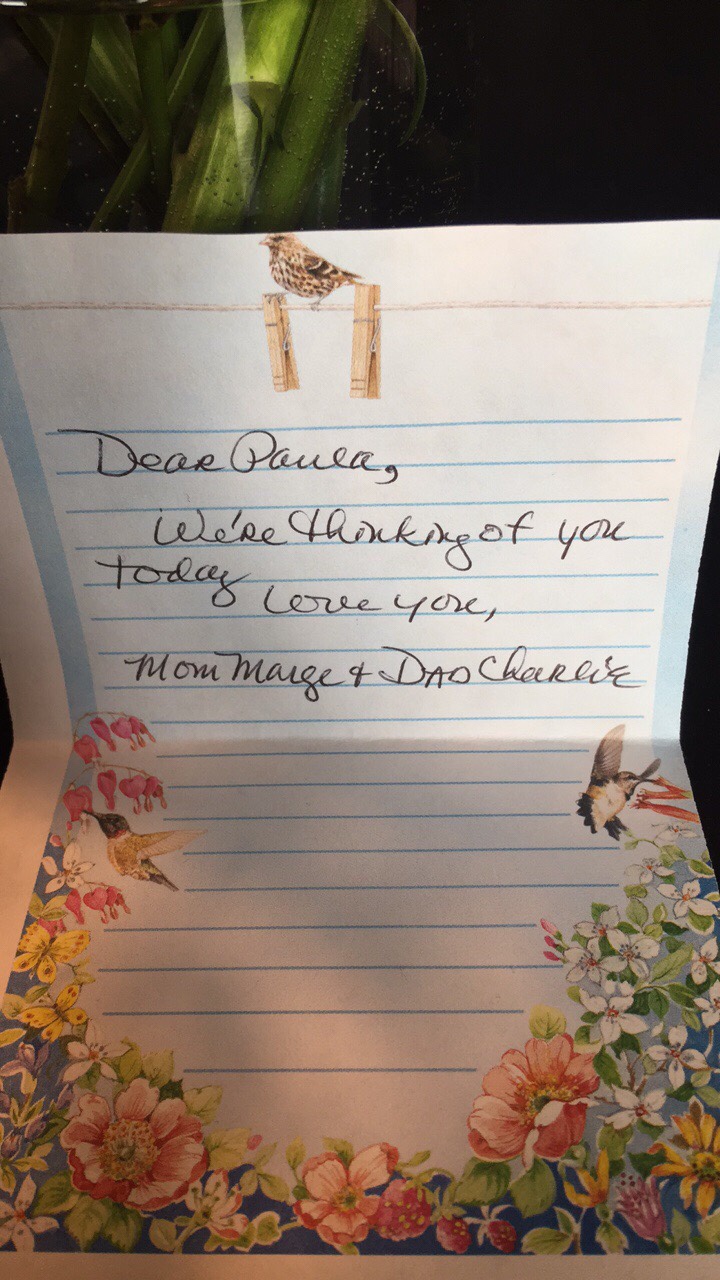 Dear Paula,
We're thinking of you
today
Love you,
Mom Marge & DAD Charlie